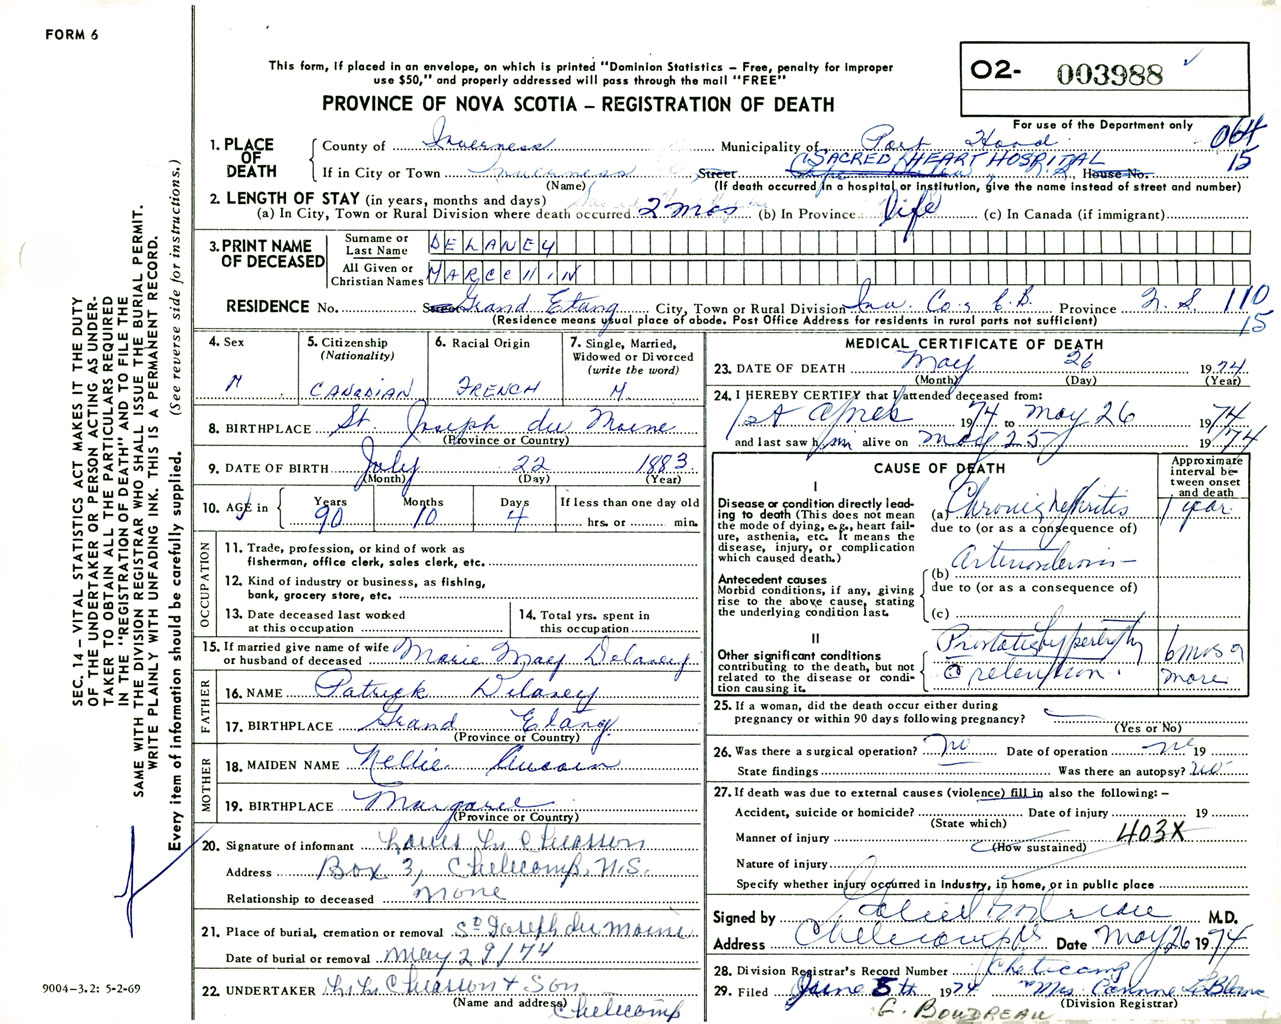 FORM 6
This form, if placed in an envelope, on which is printed "Dominion Statistics – Free, penalty for improper
use $50," and properly addressed will pass through the mail "FREE"
O2- 003988
PROVINCE OF NOVA SCOTIA – REGISTRATION OF DEATH
For use of the Department only
064
15
1. PLACE OF DEATH
County of Inverness Municipality of Port Hood
If in City or Town Inverness Street SACRED HEART HOSPITAL House No.
(Name) (If death occurred in a hospital or institution, give the name instead of street and number)
2. LENGTH OF STAY (in years, months and days)
(a) In City, Town or Rural Division where death occurred 2 mos (b) In Province life (c) In Canada (if immigrant)
3. PRINT NAME OF DECEASED
Surname or Last Name DELANEY
All Given or Christian Names MARCELLIN
RESIDENCE No. Street Grand Etang City, Town or Rural Division Inv. Co., C.B. Province N.S. 110
(Residence means usual place of abode. Post Office Address for residents in rural parts not sufficient) 15
4. Sex M
5. Citizenship (Nationality) CANADIAN
6. Racial Origin FRENCH
7. Single, Married, Widowed or Divorced (write the word) M.
8. BIRTHPLACE St. Joseph du Moine
(Province or Country)
9. DATE OF BIRTH July 22 1883
(Month) (Day) (Year)
10. AGE in Years 90 Months 10 Days 4 If less than one day old
hrs. or min.
OCCUPATION
11. Trade, profession, or kind of work as
fisherman, office clerk, sales clerk, etc.
12. Kind of industry or business, as fishing,
bank, grocery store, etc.
13. Date deceased last worked
at this occupation
14. Total yrs. spent in
this occupation
15. If married give name of wife
or husband of deceased Marie May Delaney
FATHER
16. NAME Patrick Delaney
17. BIRTHPLACE Grand Etang
(Province or Country)
MOTHER
18. MAIDEN NAME Nellie Aucoin
19. BIRTHPLACE Margaree
(Province or Country)
20. Signature of informant Chiasson
Address Box 3, Cheticamp, N.S.
Relationship to deceased None
21. Place of burial, cremation or removal St Joseph du Moine
Date of burial or removal May 29/74
22. UNDERTAKER Chiasson & Son
(Name and address) Cheticamp
MEDICAL CERTIFICATE OF DEATH
23. DATE OF DEATH May 26 1974
(Month) (Day) (Year)
24. I HEREBY CERTIFY that I attended deceased from:
1st April 1974 to May 26 1974
and last saw him alive on May 25 1974
CAUSE OF DEATH
Approximate interval between onset and death
I
Disease or condition directly leading to death (This does not mean the mode of dying, e.g., heart failure, asthenia, etc. It means the disease, injury, or complication which caused death.)
(a) Chronic Nephritis 1 year
due to (or as a consequence of)
Antecedent causes
Morbid conditions, if any, giving rise to the above cause, stating the underlying condition last.
(b) Arteriosclerosis
due to (or as a consequence of)
(c)
II
Other significant conditions
contributing to the death, but not related to the disease or condition causing it.
Prostatic hypertrophy
c retention.
6 mos or more
25. If a woman, did the death occur either during
pregnancy or within 90 days following pregnancy?
(Yes or No)
26. Was there a surgical operation? no Date of operation 19
State findings Was there an autopsy? no
27. If death was due to external causes (violence) fill in also the following: –
Accident, suicide or homicide? Date of injury 19
(State which)
Manner of injury 403X
(How sustained)
Nature of injury
Specify whether injury occurred in industry, in home, or in public place
Signed by M.D.
Address Cheticamp Date May 26 1974
28. Division Registrar's Record Number Cheticamp
29. Filed June 5th 1974 Mrs. Corinne LeBlanc
(Division Registrar)
G. BOUDREAU
SEC. 14 – VITAL STATISTICS ACT MAKES IT THE DUTY
OF THE UNDERTAKER OR PERSON ACTING AS UNDER-
TAKER TO OBTAIN ALL THE PARTICULARS REQUIRED
IN THE "REGISTRATION OF DEATH" AND TO FILE THE
SAME WITH THE DIVISION REGISTRAR WHO SHALL ISSUE THE BURIAL PERMIT.
WRITE PLAINLY WITH UNFADING INK. THIS IS A PERMANENT RECORD.
Every item of information should be carefully supplied. (See reverse side for instructions.)
9004-3.2: 5-2-69